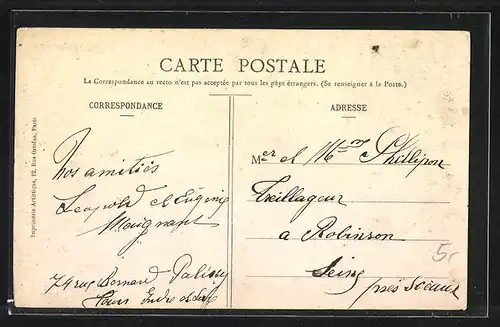 CARTE POSTALE
La Correspondance au recto n'est pas acceptée par tous les pays étrangers. (Se renseigner à la Poste.)
CORRESPONDANCE
ADRESSE
Imprimerie Artistique, 12, Rue Paris
Nos amitiés
Léopold et Eugénie
74 rue Bernard Palissy
Tours Indre et Loire
Mer et Mme Phillipon
Treillageur
a Robinson
Seine
près Sceaux
5.-